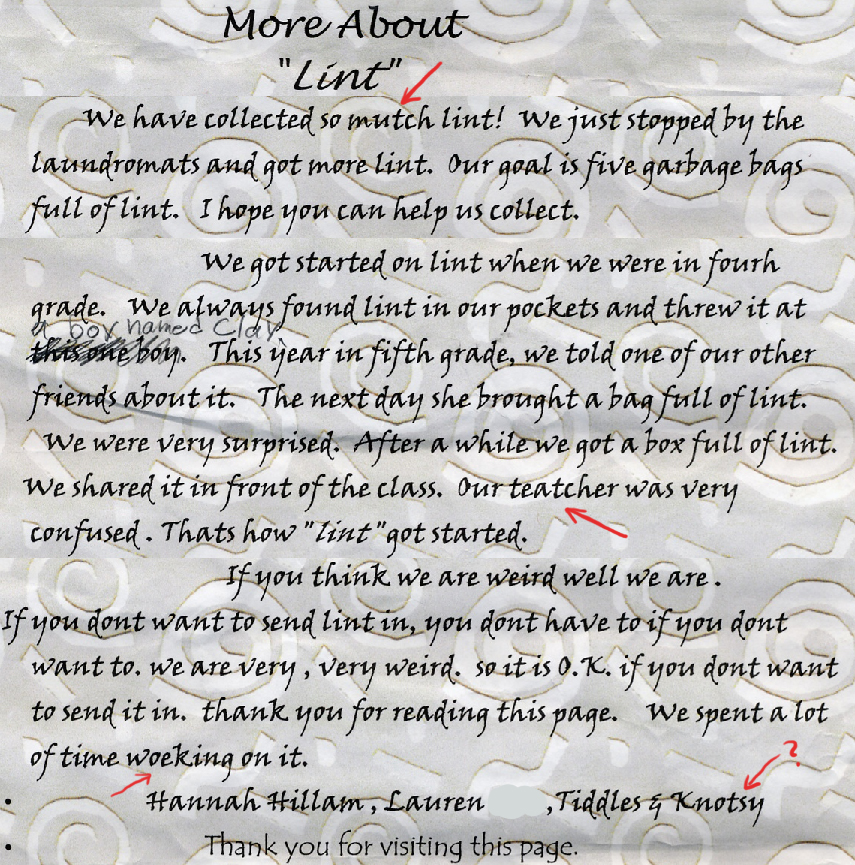 More About
"Lint"
We have collected so mutch lint! We just stopped by the
laundromats and got more lint. Our goal is five garbage bags
full of lint. I hope you can help us collect.
We got started on lint when we were in fourh
grade. We always found lint in our pockets and threw it at
a boy named Clay
this one boy. This year in fifth grade, we told one of our other
friends about it. The next day she brought a bag full of lint.
We were very surprised. After a while we got a box full of lint.
We shared it in front of the class. Our teatcher was very
confused . Thats how "lint" got started.
If you think we are weird well we are .
If you dont want to send lint in, you dont have to if you dont
want to. we are very , very weird. so it is O.K. if you dont want
to send it in. thank you for reading this page. We spent a lot
of time woeking on it.
?
• Hannah Hillam , Lauren ,Tiddles & Knotsy
• Thank you for visiting this page.